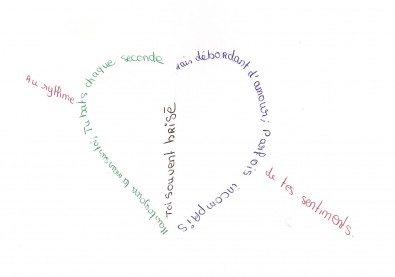 Au rythme
Tu bats chaque seconde
Toi souvent BRISÉ
mais débordant d'amour; Parfois incompris
de tes sentiments.